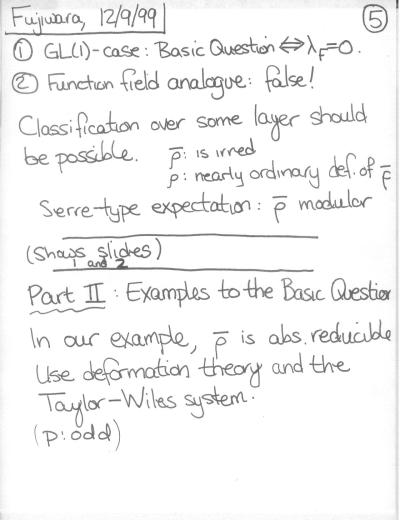 Fujiwara, 12/9/99
⑤
① GL(1)-case: Basic Question ⇔ λ_F=0.
② Function field analogue: false!
Classification over some layer should
be possible. ρ̄: is irred
ρ: nearly ordinary def. of ρ̄
Serre-type expectation: ρ̄ modular
(Shows slides)
1 and 2
Part II: Examples to the Basic Question
In our example, ρ̄ is abs. reducible
Use deformation theory and the
Taylor-Wiles system.
(p: odd)